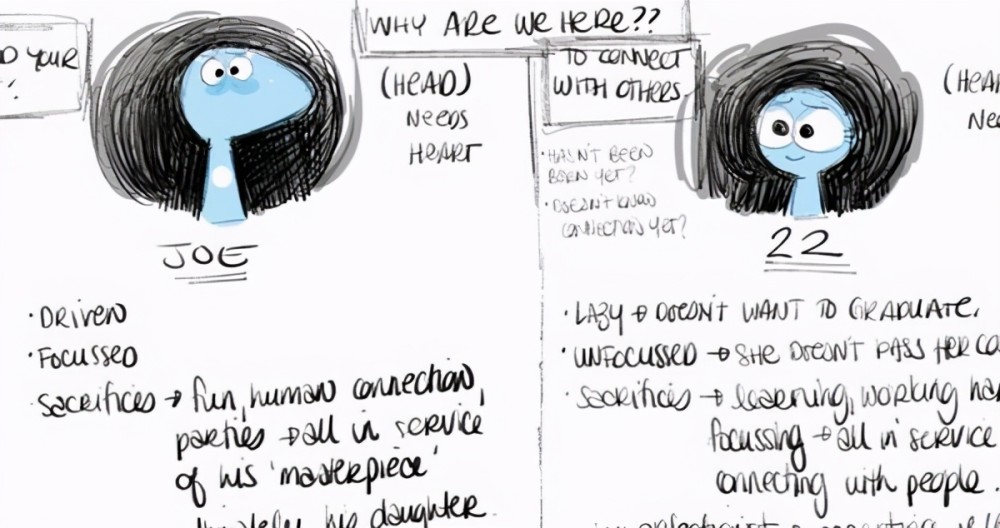 D YOUR
WHY ARE WE HERE??
TO CONNECT
WITH OTHERS
(HEAD)
NEEDS
HEART
(HEA
NE
• HASN'T BEEN
BORN YET?
• DOESN'T KNOW
CONNECTION YET?
JOE
• DRIVEN
• FOCUSSED
• SACRIFICES → fun, human connection,
parties → all in service
of his 'masterpiece'
his daughter
22
• LAZY → DOESN'T WANT TO GRADUATE.
• UNFOCUSSED → SHE DOESN'T PASS HER CO
• SACRIFICES → learning, working har
focussing → all in service
connecting with people.